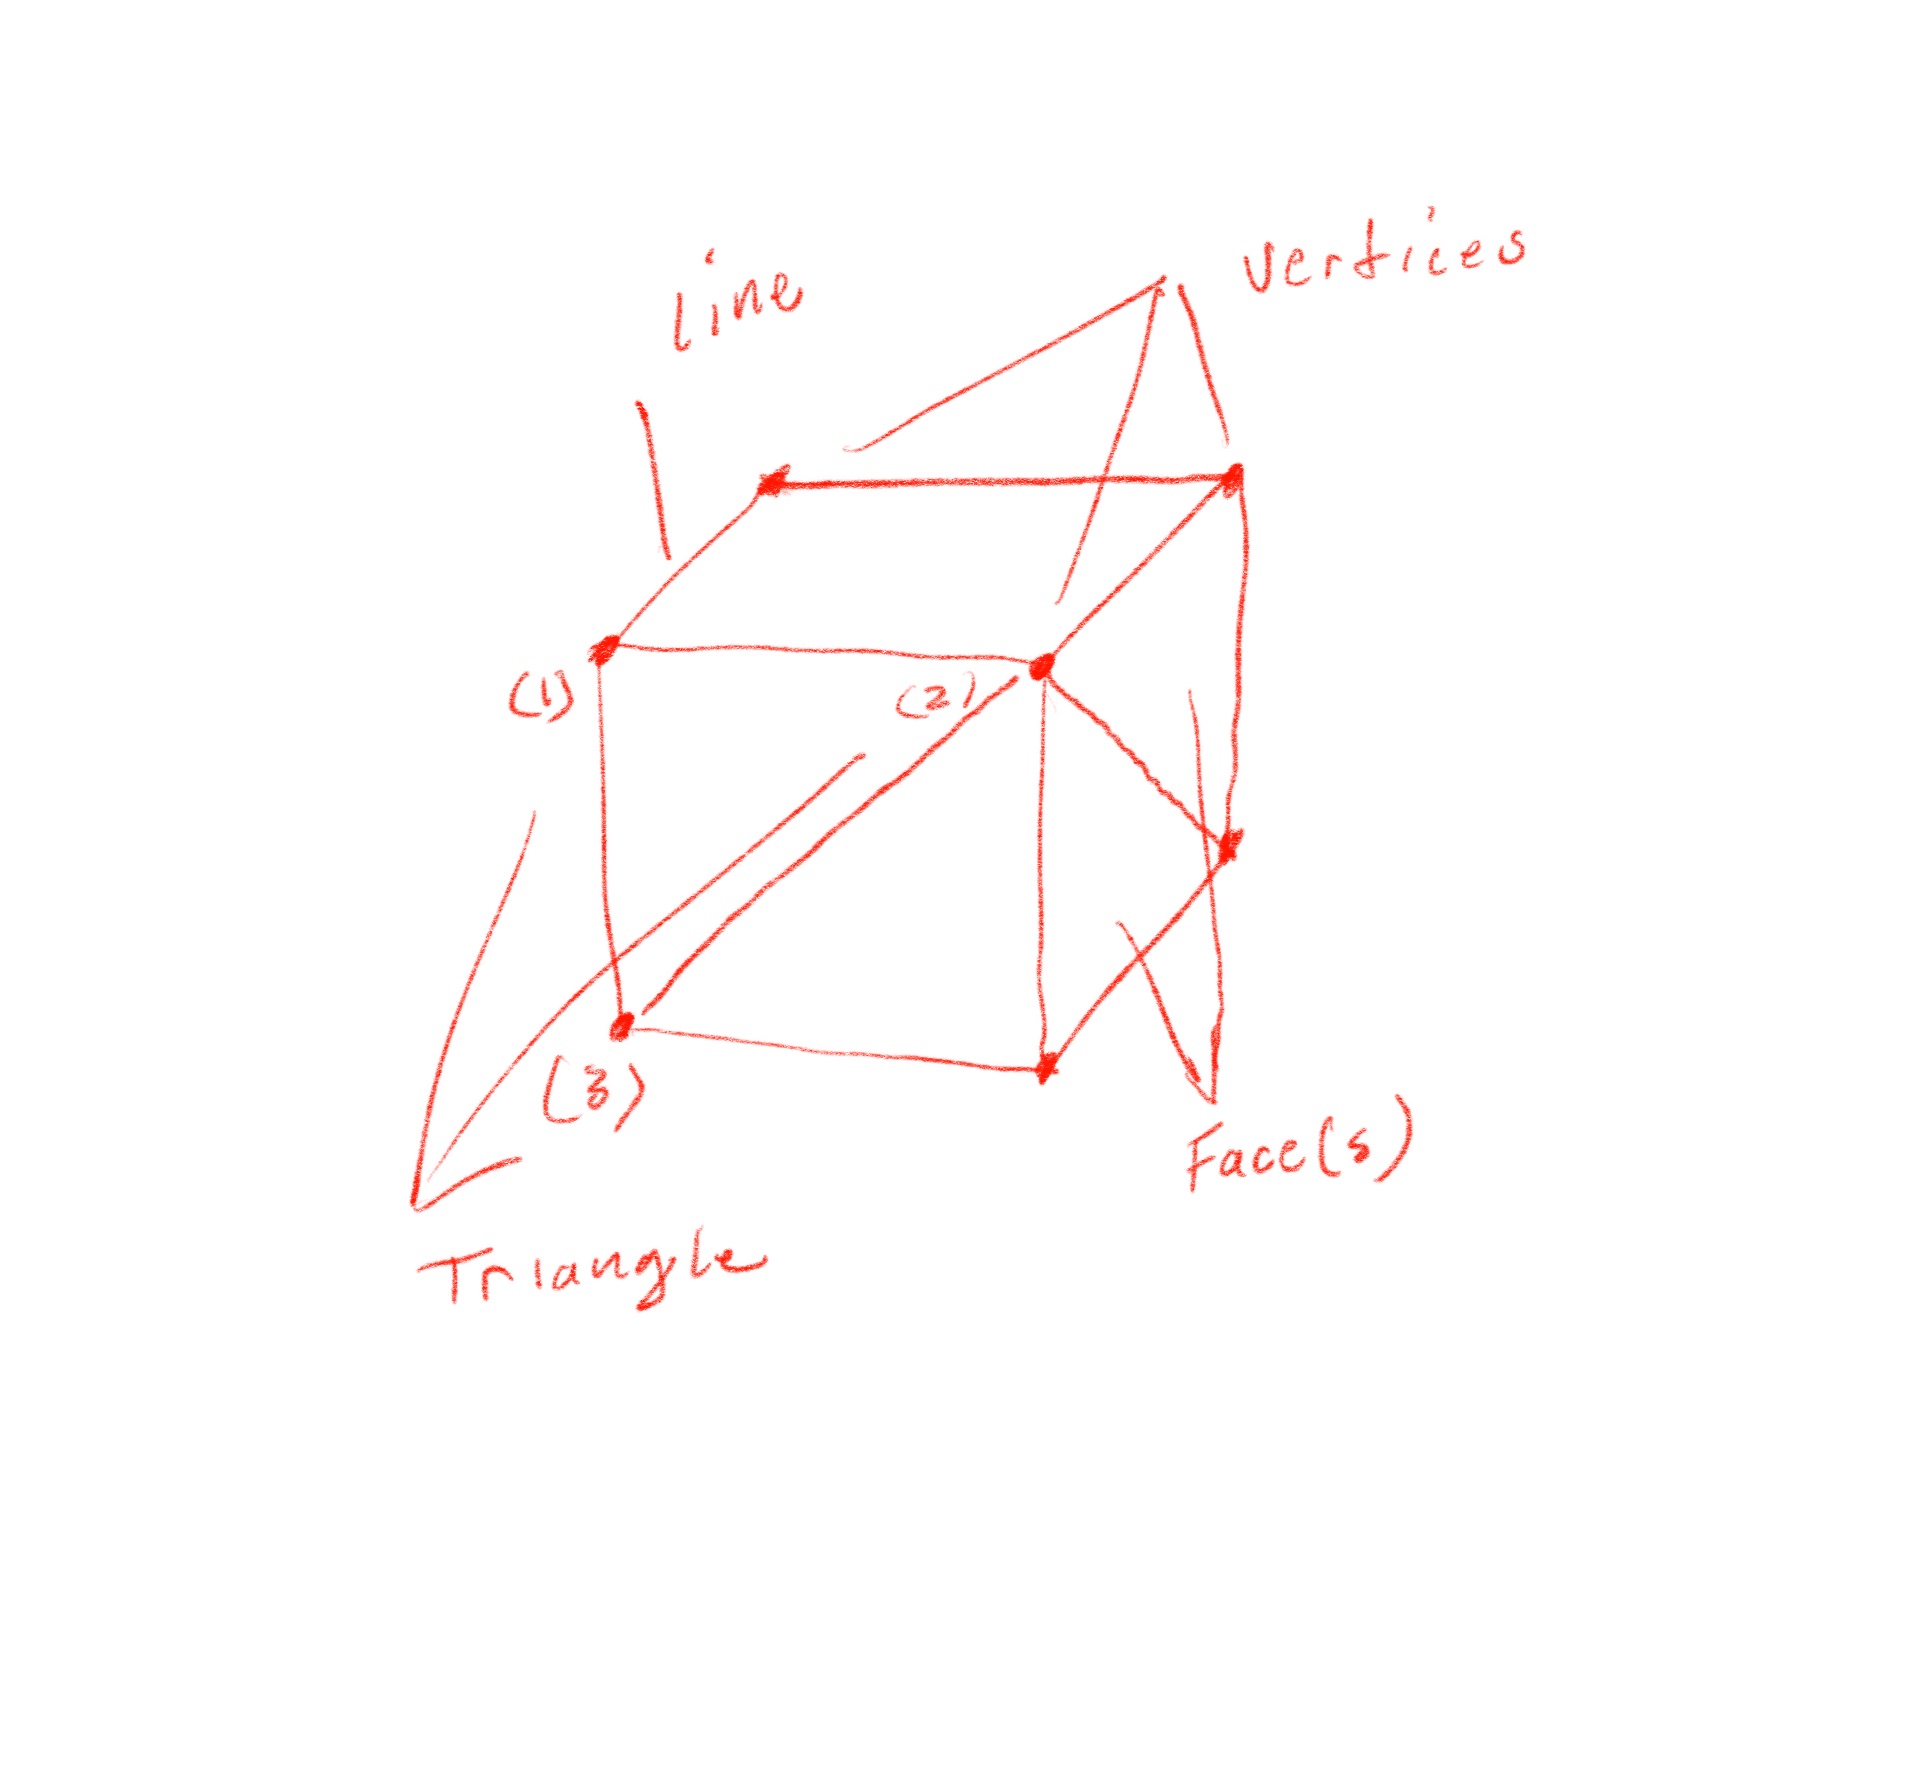 line
vertices
(1)
(2)
(3)
Face(s)
Triangle